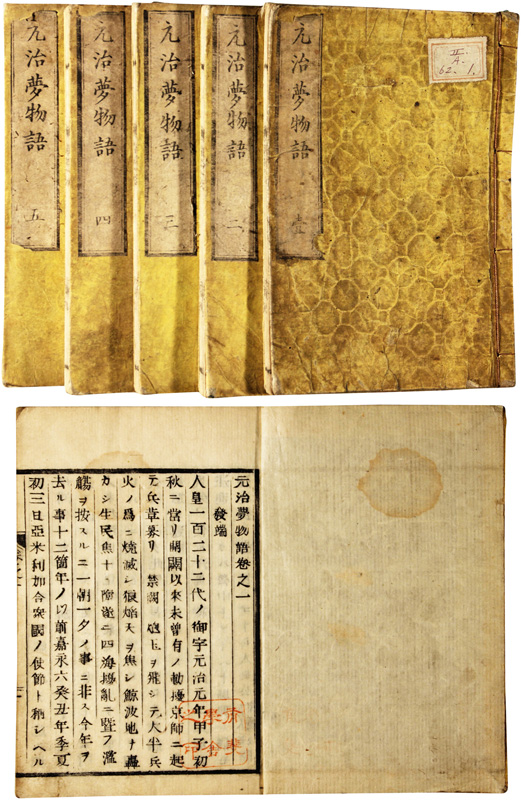 II.
A.
62. 1.
元治夢物語 壹
元治夢物語 二
元治夢物語 三
元治夢物語 四
元治夢物語 五
元治夢物語卷之一
發端
人皇一百二十二代ノ御宇元治元年甲子初
秋ニ當リ開闢以來未曾有ノ動擾京師ニ起
テ兵革募リ 禁闕ニ砲玉ヲ飛シテ大半兵
火ノ爲ニ燒滅シ狼焔天ヲ焦シ鯨波地ヲ轟
カシ生民焦土ニ陥遂ニ四海擾亂ニ曁フ濫
觴ヲ按スルニ一朝一夕ノ事ニ非ス今年ヲ
去ル事十二箇年ノ以前嘉永六癸丑年季夏
初三日亞米利加合衆國ノ使節ト稱シヘル